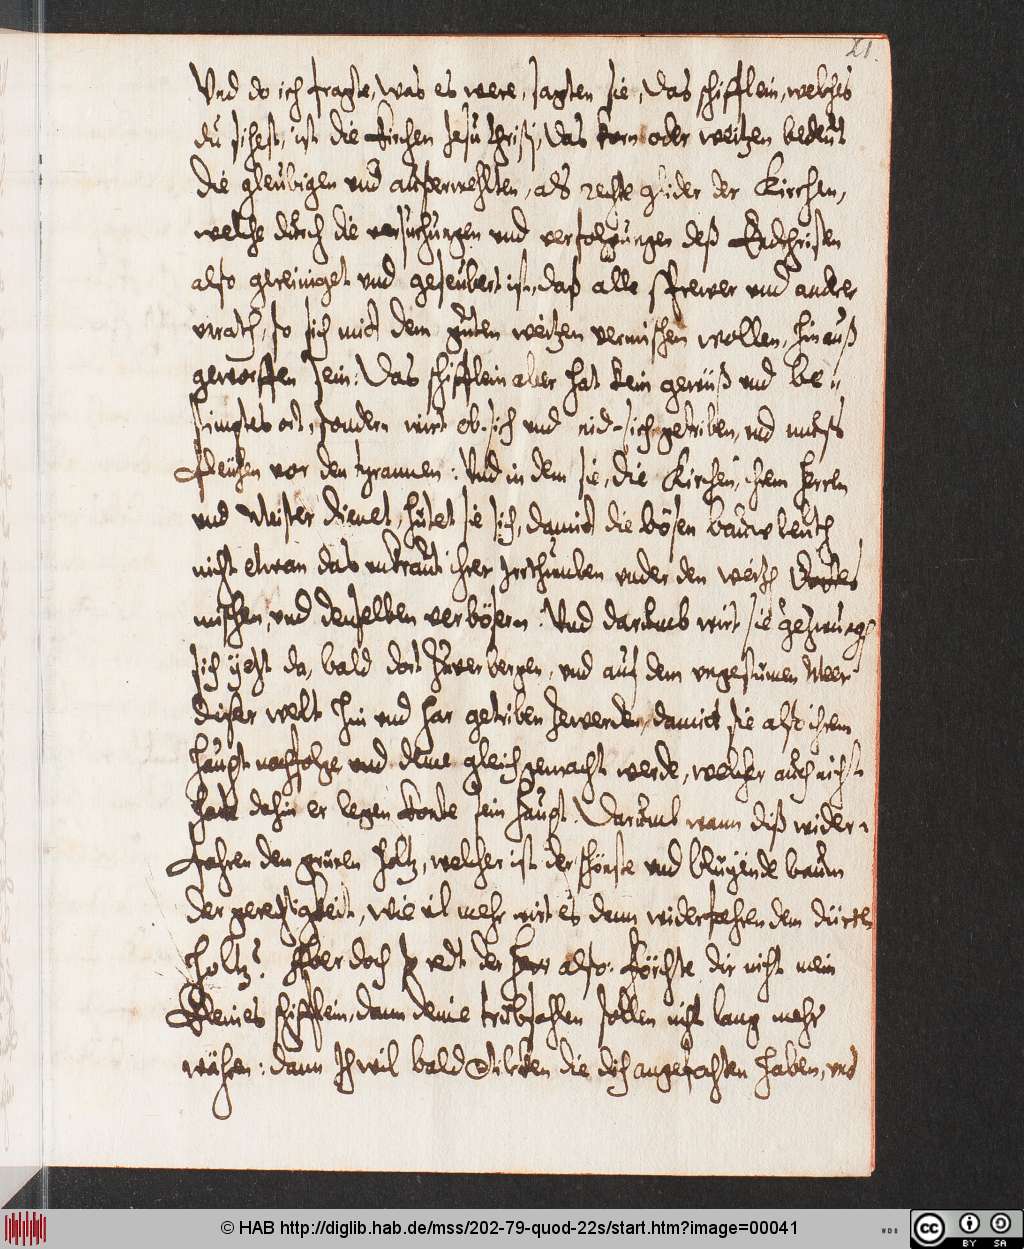 21.
Vnd do ich fragte, was es were, sagten sie, Das schifflein, welches
du sihest, ist die Kirchen Jesu Christi, Das korn oder weitzen bedeut
die gleubigen vnd ausserwehlten, als rechte glider der Kirchen,
welche durch die versuchungen vnd verfolgungen deß Endchristen
also gereiniget vnd geseubert ist, daß alle sprewer vnd ander
vnrath, so sich mit dem guten weitzen vermischen wollen, hinauß
geworffen sein: Das schifflein aber hat kein gewüß vnd be-
stimptes ort, sondern wirt ob-sich vnd nid-sich getriben, vnd muß
fleühen vor den tyrannen: Vnd in dem sie, die Kirchen, ihrem Herrn
vnd Meister dienet, hütet sie sich, damit die bösen bauwleuth
nicht etwan das vnkraut ihrer vnder den
mischen, vnd denselben verbösern: Vnd darumb wirt sie gezwung
sich yetzt da, bald dort zuverbergen, vnd auf dem vngestümen Meer
diser welt hin vnd har getriben zewerden, damit sie also ihrem
haupt nachfolge vnd deme gleich gemacht werde, welcher auch nicht
hatt dahin er legen konte sein haupt. Darumb wann diß wider-
fahren dem grünen holtz, welcher ist der schönste vnd bluyende baum
der gerechtigkeit, wie vil mehr wirt es dann widerfahren dem dürren
holtz? Aber doch so redt der Herr also: Förchte dir nicht mein
kleines schifflein, dann deine trübsahlen sollen nicht lang mehr
währen: dann Ich wil bald die dich angefochten haben, vnd
© HAB http://diglib.hab.de/mss/202-79-quod-22s/start.htm?image=00041
WDB
cc BY SA